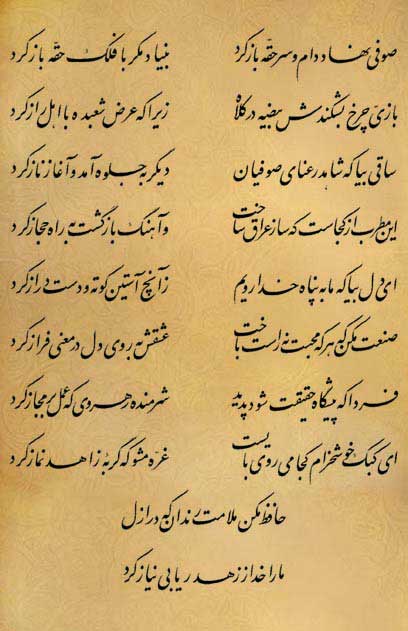 صوفی نهاد دام و سر حقه باز کرد بنیاد مکر با فلک حقّه باز کرد
بازی چرخ بشکندش بیضه در کلاه زیرا که عرض شعبده با اهل راز کرد
ساقی بیا که شاهد رعنای صوفیان دیگر به جلوه آمد و آغاز ناز کرد
این مطرب از کجاست که ساز عراق ساخت و آهنگ بازگشت به راه حجاز کرد
ای دل بیا که ما به پناه خدا رویم زآنچ آستین کوته و دست دراز کرد
صنعت مکن که هر که محبت نه راست باخت عشقش به روی دل در معنی فراز کرد
فردا که پیشگاه حقیقت شود پدید شرمنده رهروی که عمل بر مجاز کرد
ای کبک خوشخرام کجا می روی بایست غره مشو که گربه زاهد نماز کرد
حافظ مکن ملامت رندان که در ازل
ما را خدا ز زهد ریا بی نیاز کرد